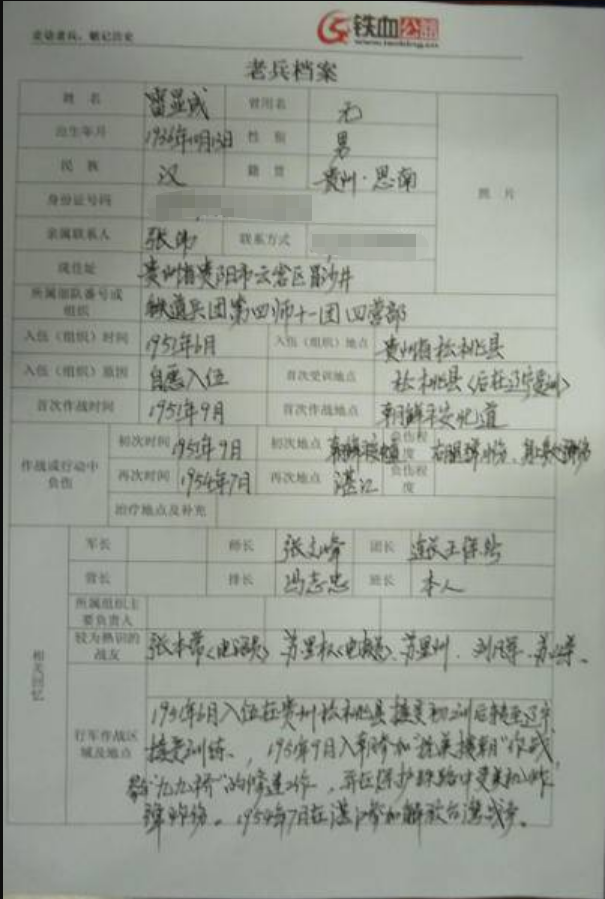 走访老兵，铭记历史
铁血公益
www.tiexing.cn
老兵档案
姓 名 雷显成 曾用名 无
出生年月 1936年10月13日 性 别 男
民 族 汉 籍 贯 贵州·思南 照 片
身份证号码
亲属联系人 张伟 联系方式
现住址 贵州省贵阳市云岩区冒沙井
所属部队番号或
组织 铁道兵团第四师十一团四营部
入伍（组织）时间 1951年6月 入伍（组织）地点 贵州省松桃县
入伍（组织）原因 自愿入伍 首次受训地点 松桃县（后在辽宁
首次作战时间 1951年9月 首次作战地点 朝鲜平安北道
作战或行动中
负伤
初次时间 1951年9月 初次地点 负伤程度 右腿
再次时间 1954年7月 再次地点 湛江 负伤程度
治疗地点及补充
相关回忆
军长 师长 张文峰 团长 连长王保
营长 排长 冯志忠 班长 本人
所属组织主
要负责人
较为熟识的
战友 刘
行军作战区
域及地点
1951年6月入伍在贵州松桃县接受初训后转至辽宁
接受训练、1951年9月入朝参加“抗美援朝”作战，
的修造工作，并在保护铁路中受美机炸
弹炸伤。1954年7月在湛江参加解放台湾战争。